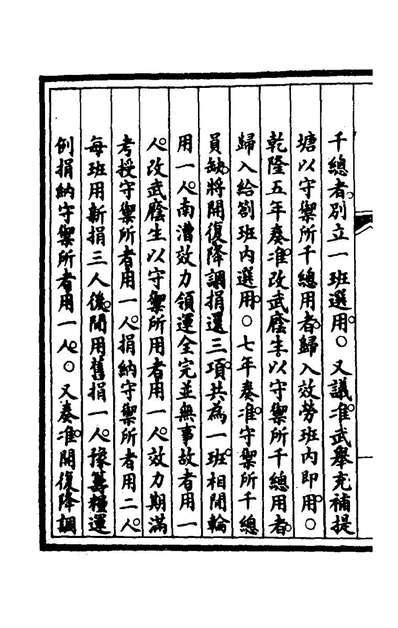 千總者別立一班選用。○又議准武舉充補提
塘以守禦所千總用者。歸入效勞班內即用。○
乾隆五年奏准改武廕生以守禦所千總用者。
歸入給劄班內選用。○七年奏准。守禦所千總
員缺將開復降調捐還三項。共為一班。相閒輪
用一人。南漕效力領運全完並無事故者用一
人。改武廕生以守禦所用者用一人。效力期滿
考授守禦所者用一人。捐納守禦所者用二人。
每班用新捐三人後。閒用舊捐一人。豫籌糧運
例捐納守禦所者用一人。○又奏准。開復降調